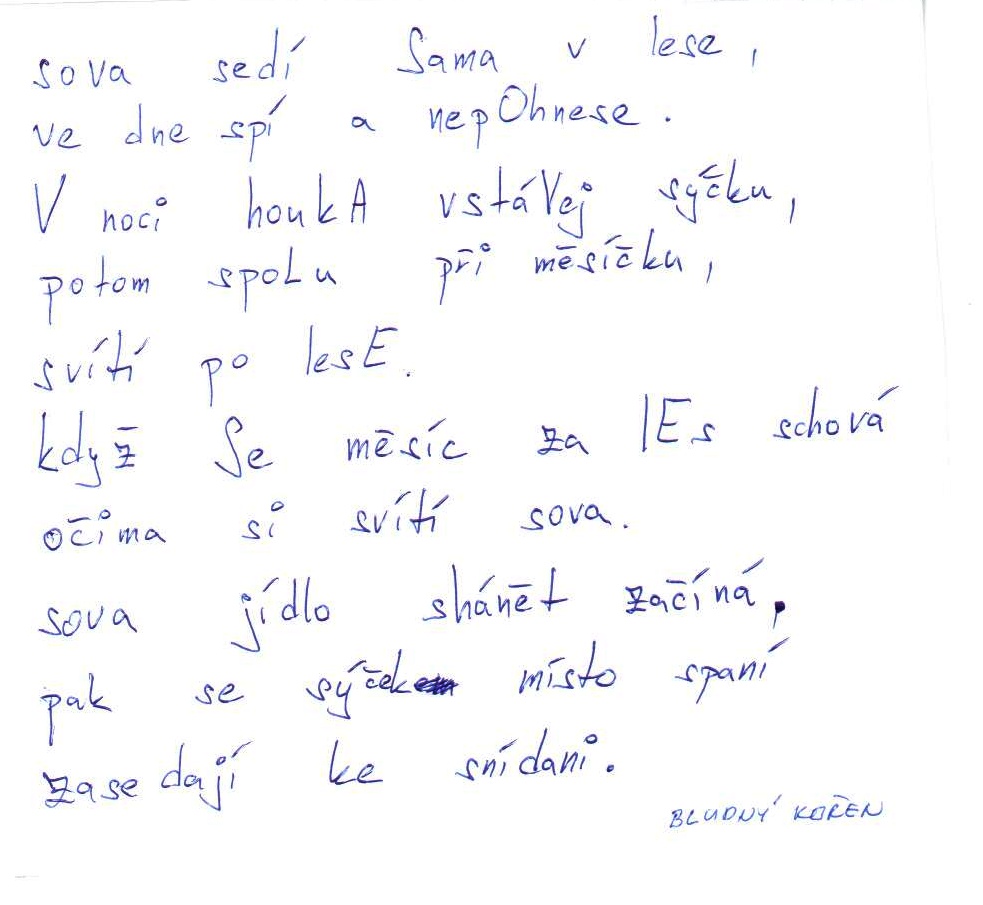 sova sedí Sama v lese,
ve dne spí a nepOhnese.
V noci houkA vstáVej sýčku,
potom spoLu při měsíčku,
svítí po lesE.
když Se měsíc za lEs schová
očima si svítí sova.
sova jídlo shánět začíná,
pak se sýček místo spaní
zasedají ke snídani.
BLUDNÝ KOŘEN